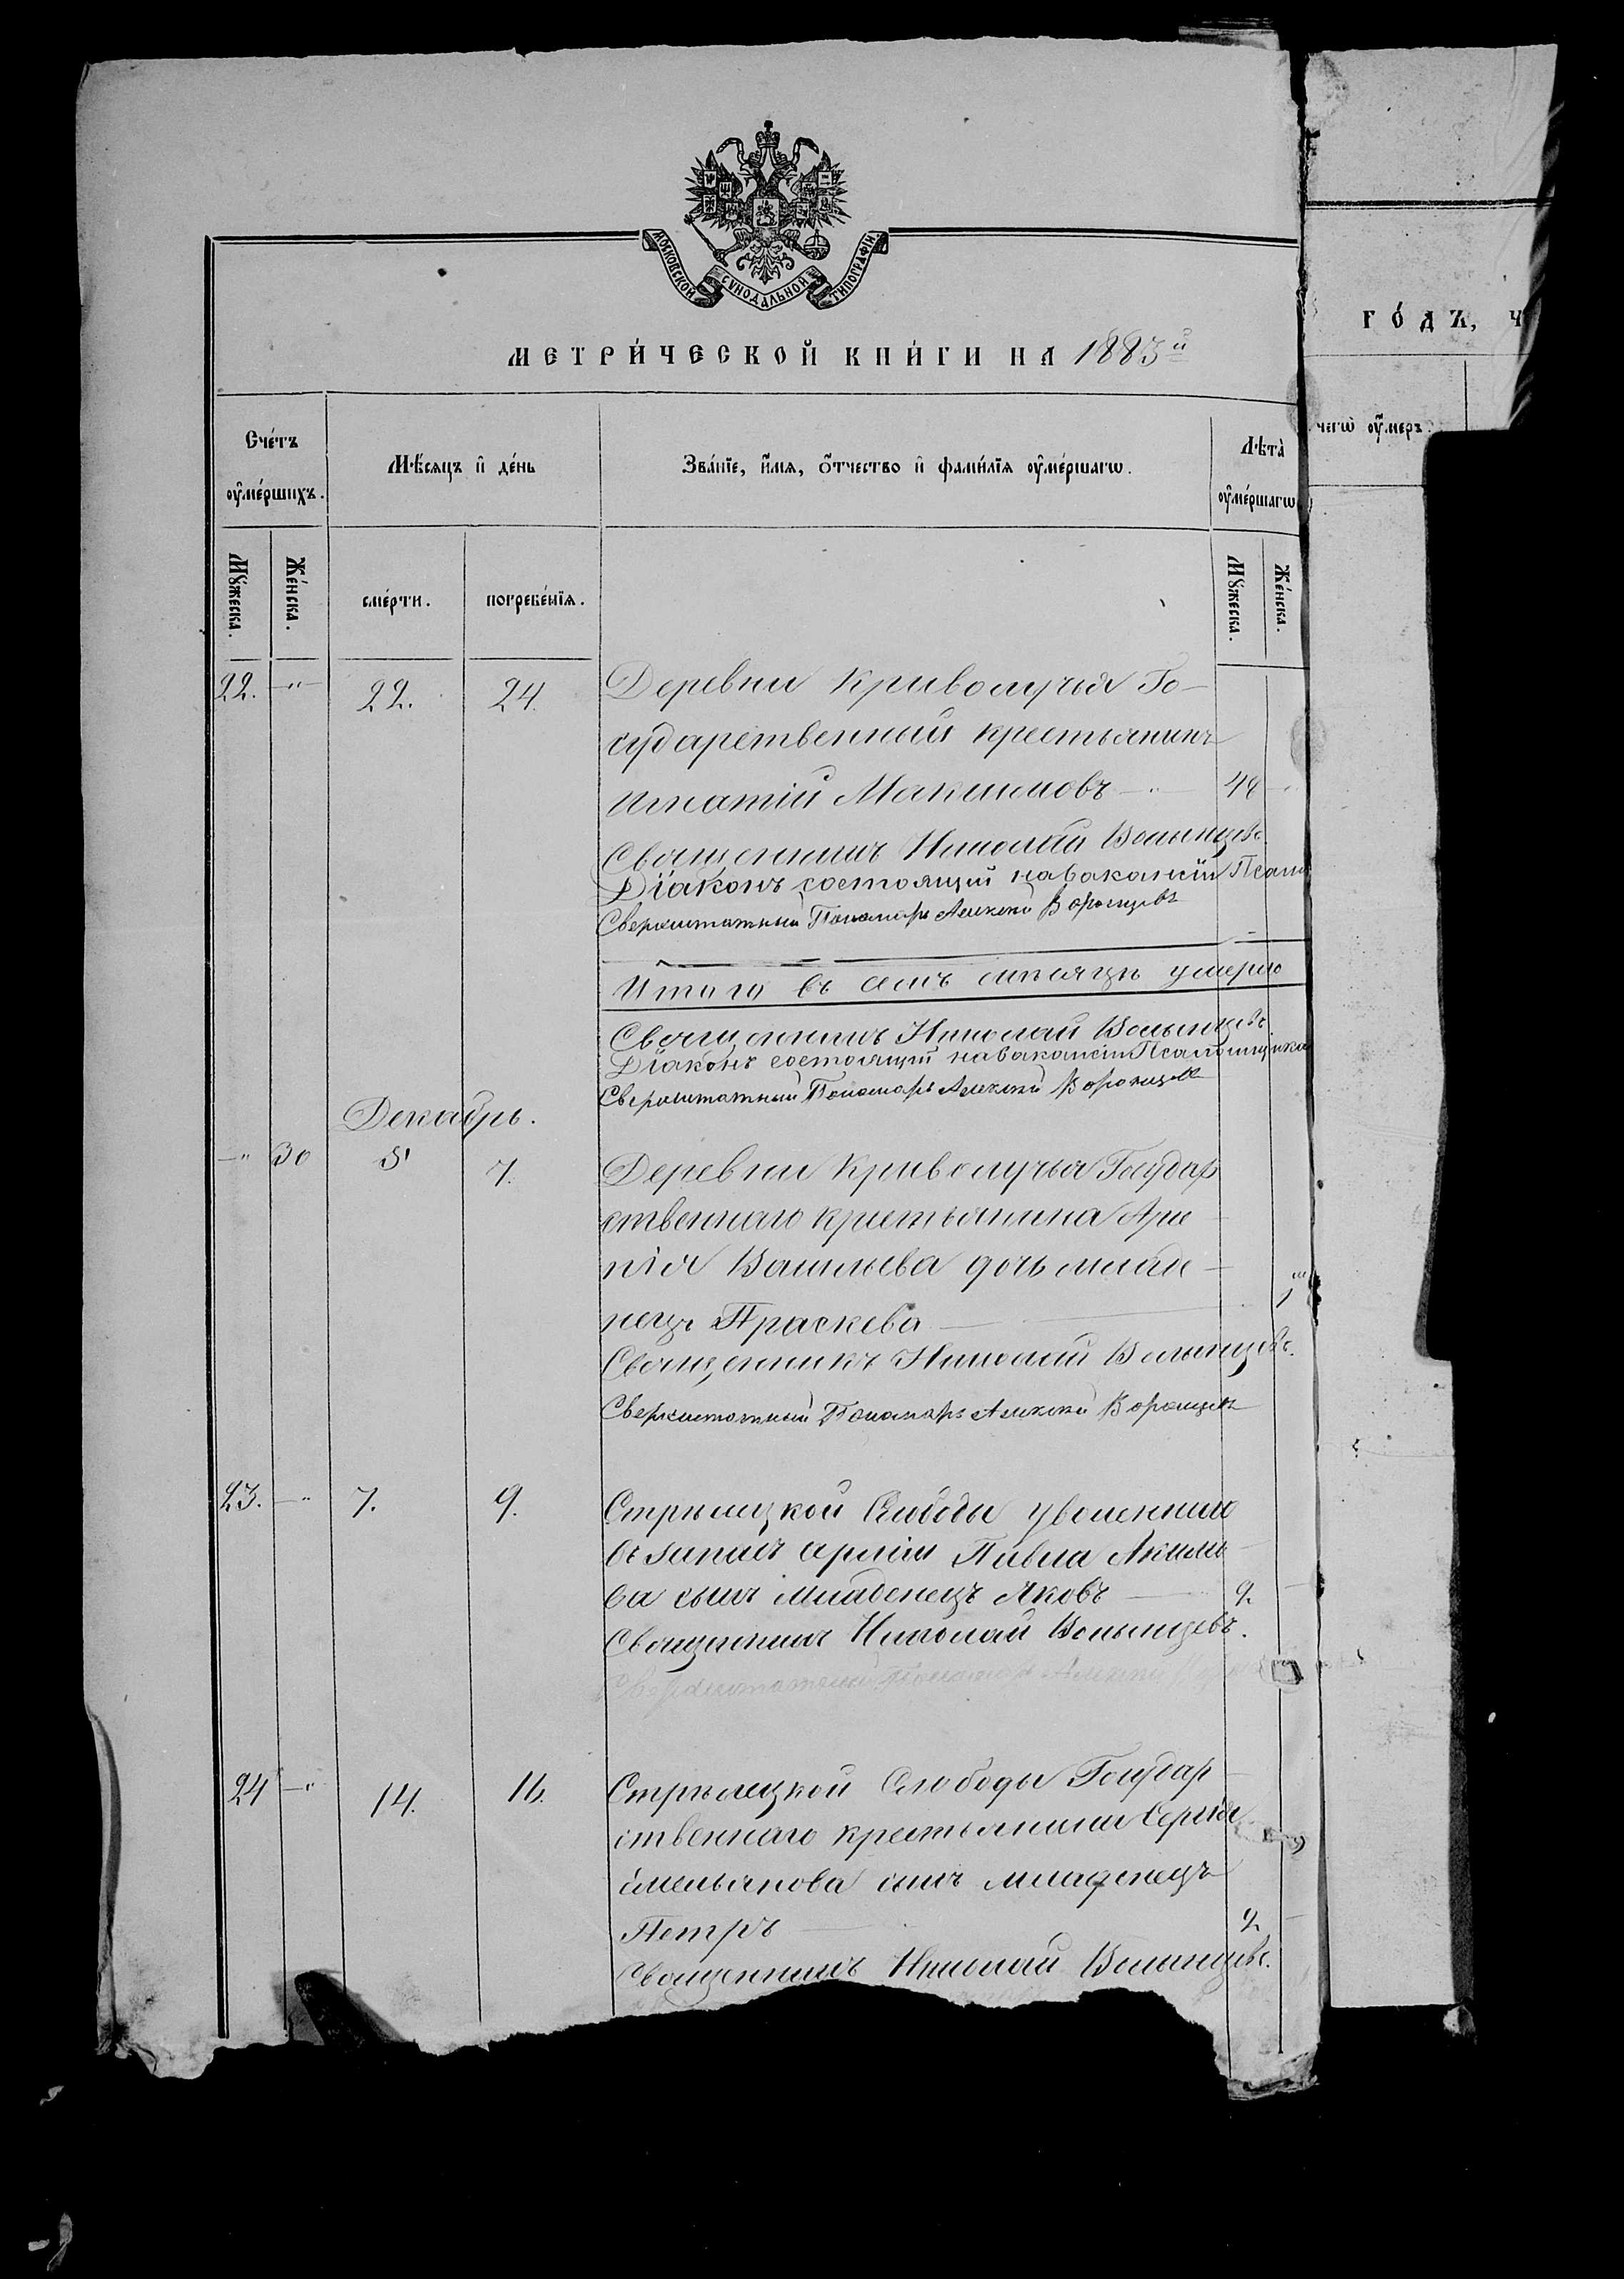 МОСКОВСКОЙ СѴНОДАЛЬНОЙ ТИПОГРАФІИ
МЕТРИ́ЧЕСКОЙ КНИ́ГИ НА 1883й
ГО́ДЪ, Ч
Сче́тъ оу҆ме́ршихъ.
Мѣ́сяцъ и҆ де́нь
Зва́нїе, и҆́мя, ѻ҆́тчество и҆ фами́лїя оу҆ме́ршагѡ.
Лѣта̀ оу҆ме́ршагѡ
чегѡ оу҆́меръ.
Мꙋ́жеска.
Же́нска.
сме́рти.
погребе́нїя.
Мꙋ́жеска.
Же́нска.
22. -"- 22. 24. Деревни Криволучья Го-
сударственный крестьянинъ
Игнатій Максимовъ -"- 48
Священникъ Николай Волынцевъ.
Діаконъ состоящій на вакансіи Псало
Сверхштатный Пономарь Алексей Воронцовъ
Итого въ семъ мѣсяцѣ умерло
Священникъ Николай Волынцевъ.
Діаконъ состоящій на вакансіи Псаломщика
Сверхштатный Пономарь Алексей Воронцовъ
Декабрь.
-"- 30 5 7. Деревни Криволучья Государ
ственнаго крестьянина Арие
пія Васильева дочь младе-
нецъ Праскева
Священникъ Николай Волынцевъ.
Сверхштатный Пономарь Алексей Воронцовъ
23. -"- 7. 9. Стрѣлецкой Слободы уволеннаго
въ запасъ арміи Павла Акимо
ва сынъ младенецъ Яковъ
Священникъ Николай Волынцевъ.
Сверхштатный Пономарь Алексей
24 -"- 14. 16. Стрѣлецкой Слободы Государ
ственнаго крестьянина Сергія
Емельянова сынъ младенецъ
Петръ
Священникъ Николай Волынцевъ.